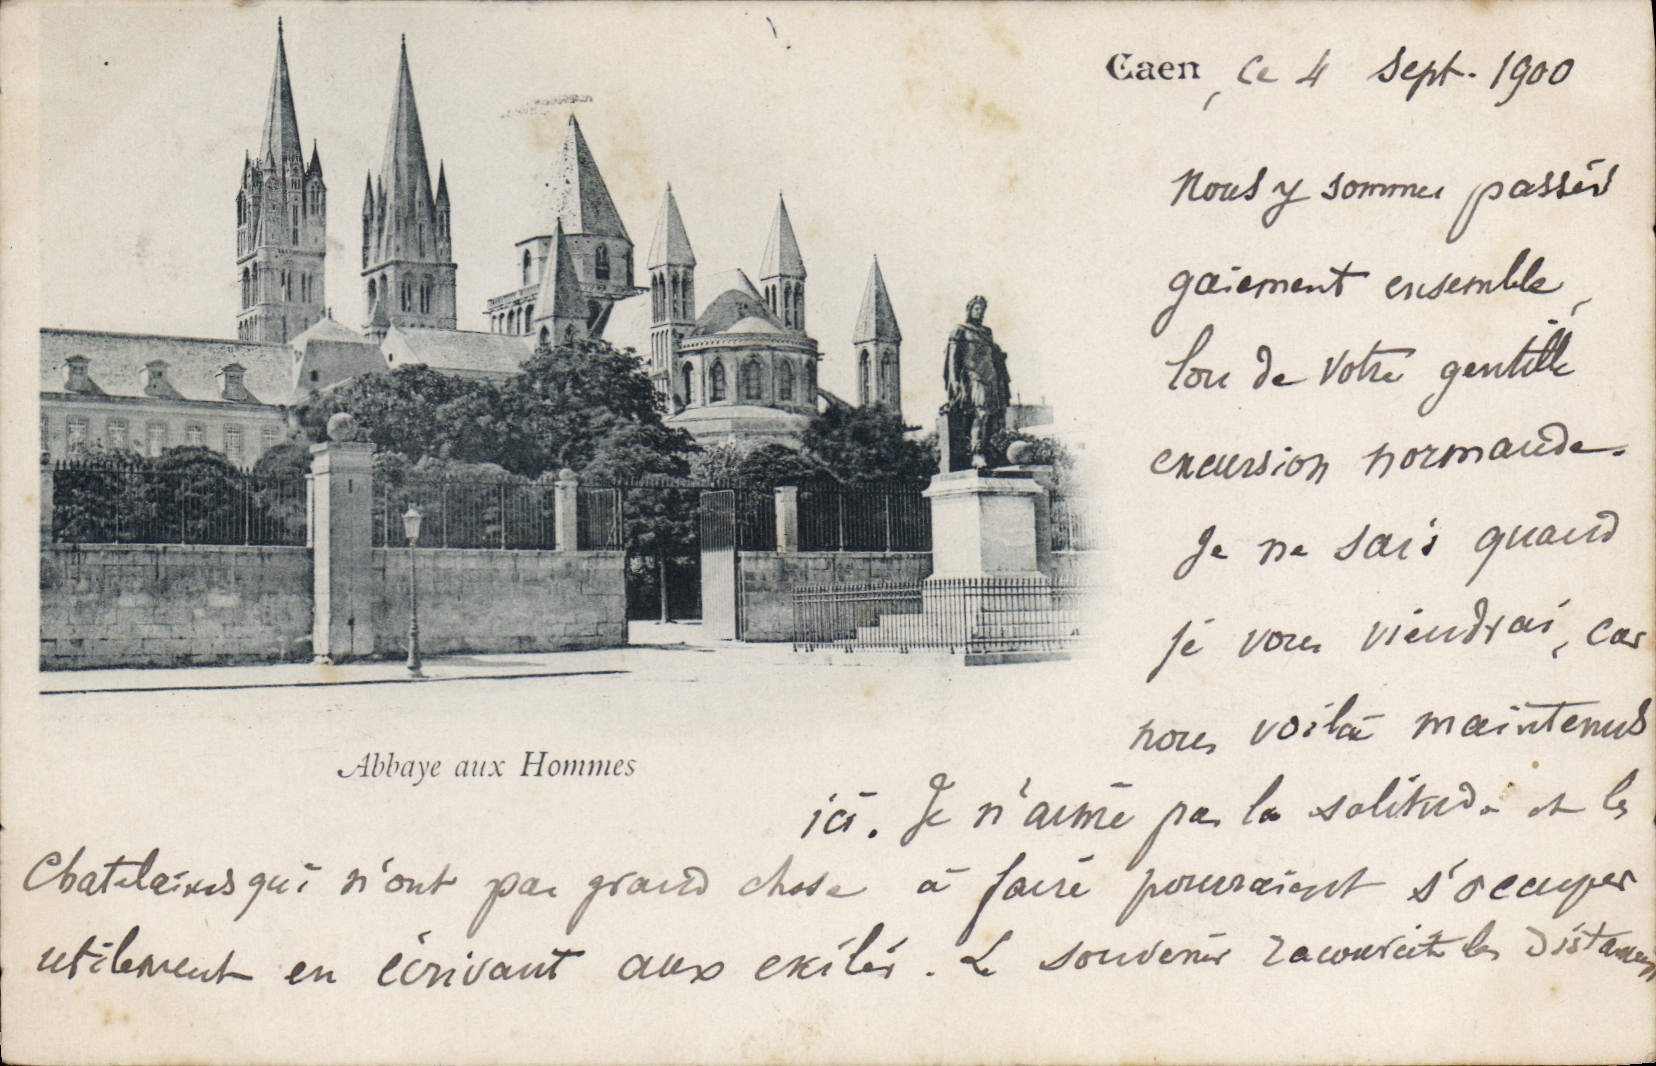 Caen, ce 4 Sept. 1900
Nous y sommes passés
gaiement ensemble,
lors de votre gentille
excursion normande.
Je ne sais quand
je vous viendrai, car
nous voilà maintenus
Abbaye aux Hommes
ici. Je n'aime pas la solitude et les
Chatelaines qui n'ont pas grand chose à faire pourraient s'occuper
utilement en écrivant aux exilés. Le souvenir raccourcit les distances